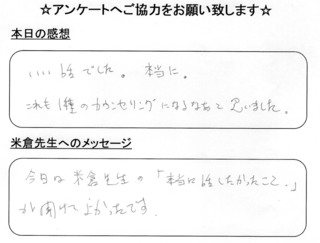 ☆アンケートへご協力をお願い致します☆
本日の感想
いい話でした。本当に。
これも1種のカウンセリングになるなあと思いました。
米倉先生へのメッセージ
今日は米倉先生の「本当に話したかったこと。」
が聞けてよかったです。